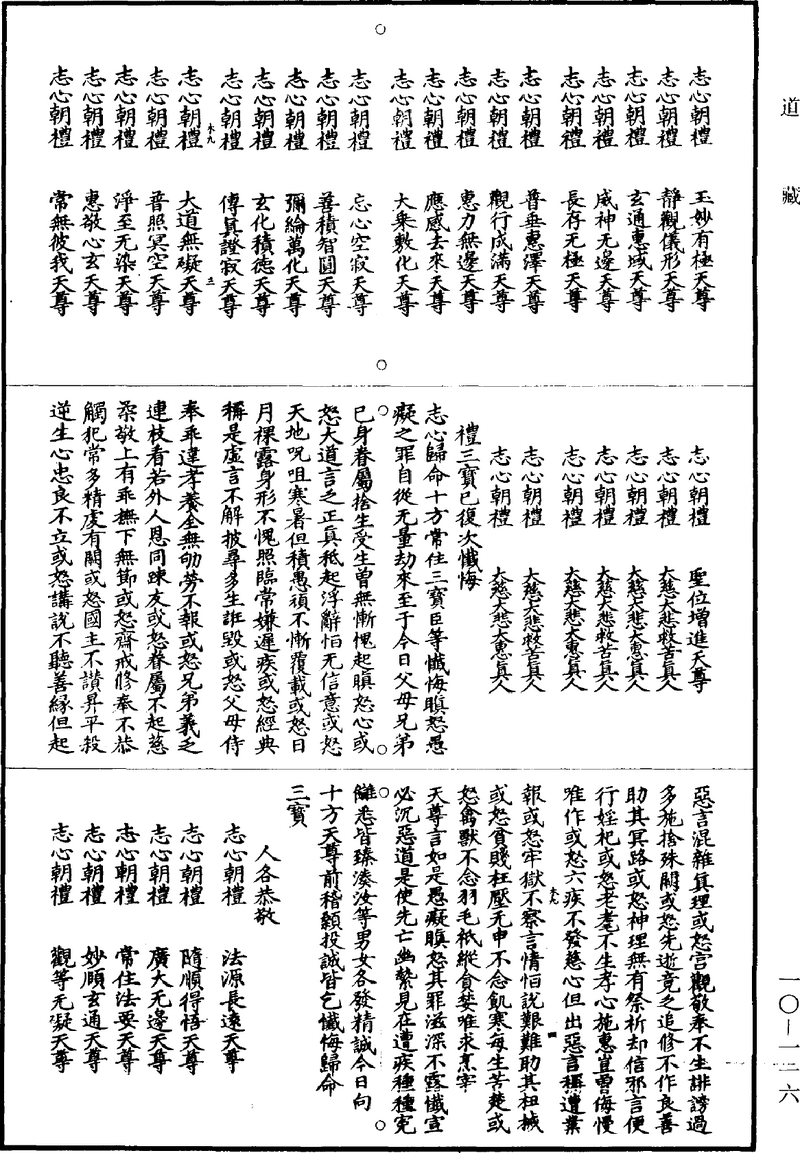 道藏
志心朝禮　玉妙有極天尊
志心朝禮　靜觀儀形天尊
志心朝禮　玄通惠域天尊
志心朝禮　威神无邊天尊
志心朝禮　長存无極天尊
志心朝禮　普垂惠澤天尊
志心朝禮　觀行成滿天尊
志心朝禮　惠力無邊天尊
志心朝禮　應感去來天尊
志心朝禮　大乘敷化天尊
志心朝禮　忘心空寂天尊
志心朝禮　善積智圓天尊
志心朝禮　彌綸萬化天尊
志心朝禮　玄化積德天尊
志心朝禮　傳真證寂天尊
志心朝禮　大道無礙天尊
志心朝禮　普照冥空天尊
志心朝禮　淨至无染天尊
志心朝禮　惠敬心玄天尊
志心朝禮　常無彼我天尊
志心朝禮　聖位增進天尊
志心朝禮　大慈大悲救苦真人
志心朝禮　大慈大悲大惠真人
志心朝禮　大慈大悲救苦真人
志心朝禮　大慈大悲大惠真人
志心朝禮　大慈大悲救苦真人
志心朝禮　大慈大悲大惠真人
禮三寶已復次懺悔
志心歸命十方常住三寶臣等懺悔瞋怒愚
癡之罪自從无量劫來至于今日父母兄弟
己身眷屬捨生受生曾無慚愧起瞋怒心或
怒大道言之正真秪起浮辭怕无信意或怒
天地呪咀寒暑但積愚頑不慚覆載或怒日
月裸露身形不愧照臨常嫌遲疾或怒經典
稱是虛言不解披尋多生誑毀或怒父母侍
奉乖違孝養全無劬勞不報或怒兄弟義乏
連枝看若外人恩同踈友或怒眷屬不起慈
柔敬上有乖撫下無節或怒齋戒修奉不恭
觸犯常多精虔有闕或怒國主不讃昇平投
逆生心忠良不立或怒講說不聽善緣但起
惡言混雜真理或怒宮觀敬奉不生誹謗過
多施捨殊闕或怒先逝竟乏追修不作良善
助其冥路或怒神理無有祭祈却信邪言便
行婬祀或怒老耄不生孝心施惠豈曾侮慢
唯作或怒六疾不發慈心但出惡言稱遭業
報或怒牢獄不察言情怕說艱難助其杻械
或怒貧賤枉壓无申不念飢寒每生苦楚或
怒禽獸不念羽毛秪縱貪婪唯求烹宰
天尊言如是愚癡瞋怒其罪滋深不露懺宣
必沉惡道是使先亡幽縶見在遭疾種種寃
讎悉皆臻湊汝等男女各發精誠今日向
十方天尊前稽顙投誠皆乞懺悔歸命
三寶
人各恭敬
志心朝禮　法源長遠天尊
志心朝禮　隨順得悟天尊
志心朝禮　廣大无邊天尊
志心朝禮　常住法要天尊
志心朝禮　妙順玄通天尊
志心朝禮　觀等无礙天尊
一〇—一三六